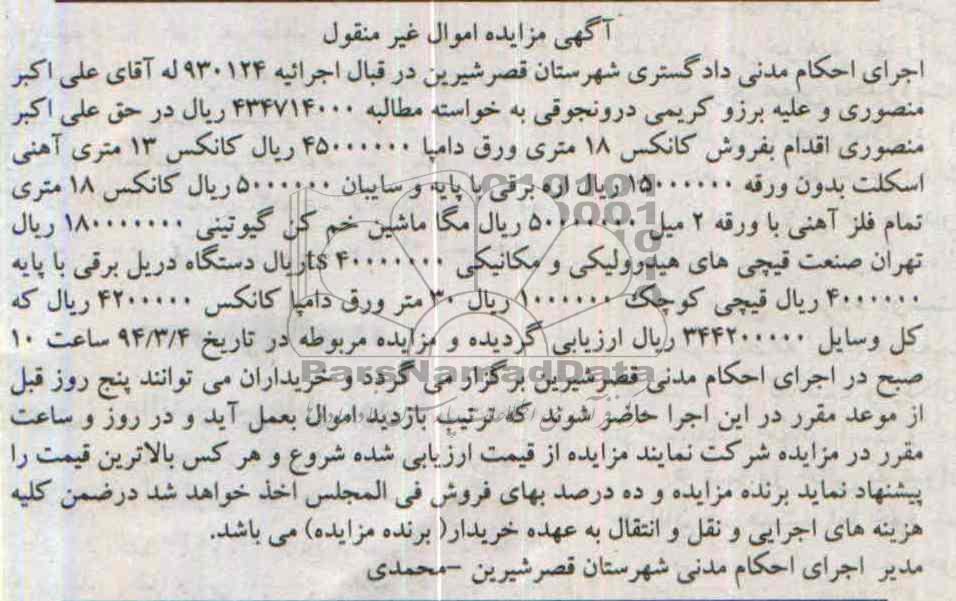 آگهی مزایده اموال غیر منقول
اجرای احکام مدنی دادگستری شهرستان قصرشیرین در قبال اجرائیه ۹۳۰۱۲۴ له آقای علی اکبر
منصوری و علیه برزو کریمی درونجوقی به خواسته مطالبه ۴۳۴۷۱۴۰۰۰ ریال در حق علی اکبر
منصوری اقدام بفروش کانکس ۱۸ متری ورق دامپا ۴۵۰۰۰۰۰۰ ریال کانکس ۱۳ متری آهنی
اسکلت بدون ورقه ۱۵۰۰۰۰۰۰ ریال اره برقی با پایه و سایبان ۵۰۰۰۰۰۰ ریال کانکس ۱۸ متری
تمام فلز آهنی با ورقه ۲ میل ریال مگا ماشین خم کن گیوتینی ۱۸۰۰۰۰۰۰۰ ریال
تهران صنعت قیچی های هیدرولیکی و مکانیکی ۴۰۰۰۰۰۰۰ tsریال دستگاه دریل برقی با پایه
۴۰۰۰۰۰۰ ریال قیچی کوچک ۱۰۰۰۰۰۰ ریال ۳۰ متر ورق دامپا کانکس ۴۲۰۰۰۰۰ ریال که
کل وسایل ۳۴۴۲۰۰۰۰۰ ریال ارزیابی گردیده و مزایده مربوطه در تاریخ ۹۴/۳/۴ ساعت ۱۰
صبح در اجرای احکام مدنی قصرشیرین برگزار می گردد و خریداران می توانند پنج روز قبل
از موعد مقرر در این اجرا حاضر شوند که ترتیب بازدید اموال بعمل آید و در روز و ساعت
مقرر در مزایده شرکت نمایند مزایده از قیمت ارزیابی شده شروع و هر کس بالاترین قیمت را
پیشنهاد نماید برنده مزایده و ده درصد بهای فروش فی المجلس اخذ خواهد شد درضمن کلیه
هزینه های اجرایی و نقل و انتقال به عهده خریدار( برنده مزایده) می باشد.
مدیر اجرای احکام مدنی شهرستان قصرشیرین –محمدی
ParsNamadData